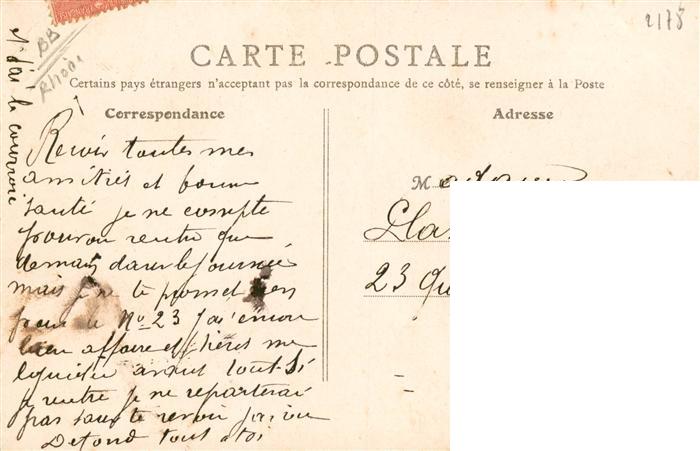 2178
BB
Rhône
J'ai la courroie
CARTE POSTALE
Certains pays étrangers n'acceptant pas la correspondance de ce côté, se renseigner à la Poste
Correspondance
Adresse
Recois toutes mes
amitiés et bonne
santé je ne compte
pouvoir rentré que
demain dans le journée
mais je ne te promet rien
pour le No 23 j'ai encore
bien affaire et
avant tout Si
rentre je ne reparterai
pas sans te revoir
Detond tout a toi
Madame
23 Qu